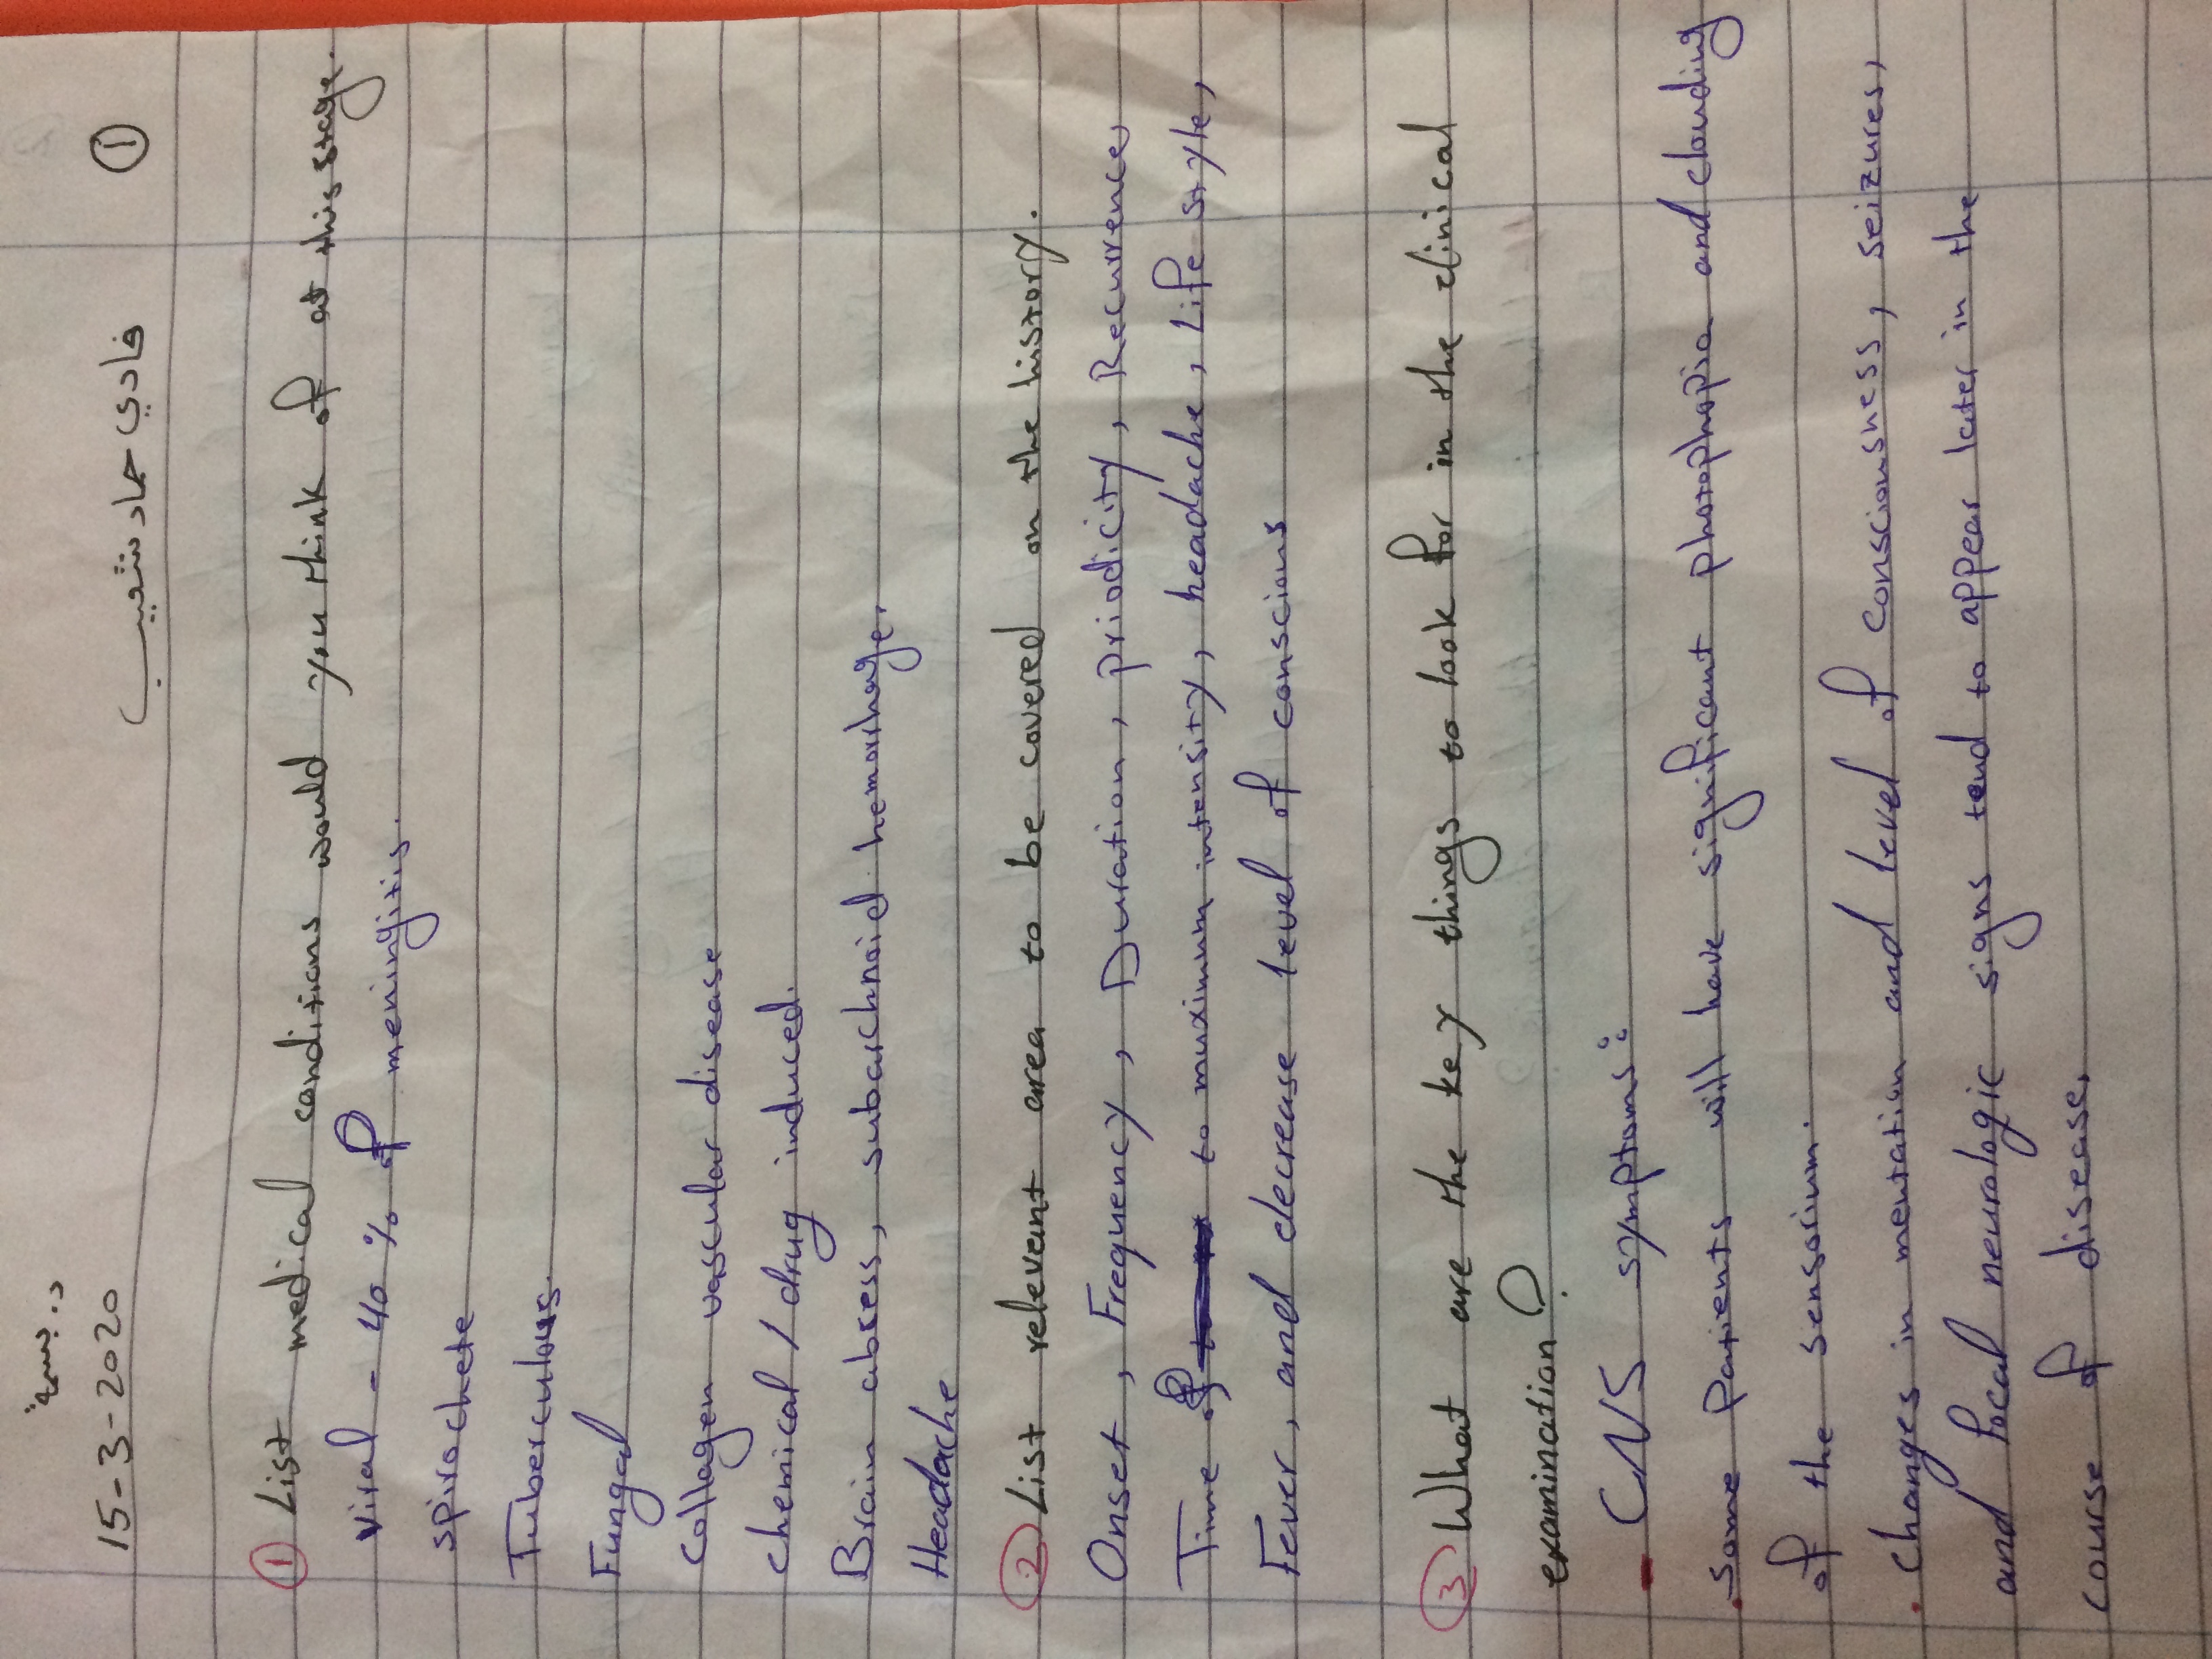 15-3-2020
فادي حماد شعيب ①
① List medical conditions would you think of at this stage.
Viral - 40 % of meningitis.
spirochete
Tuberculous.
Fungal
Collagen vascular disease
chemical / drug induced.
Brain absess, subarchnoid hemorrhage.
Headache
② List relevent area to be covered on the history.
Onset, Frequency, Duration, priodicity, Recurrence,
Time of to maximum intensity, headache, Life style,
Fever, and decrease level of conscious
③ What are the key things to look for in the clinical
examination?
- CNS symptoms:
. Some patients will have significant photophopia and clouding
of the sensorium.
. Changes in mentation and level of consciousness, seizures,
and focal neurologic signs tend to appear later in the
course of disease.